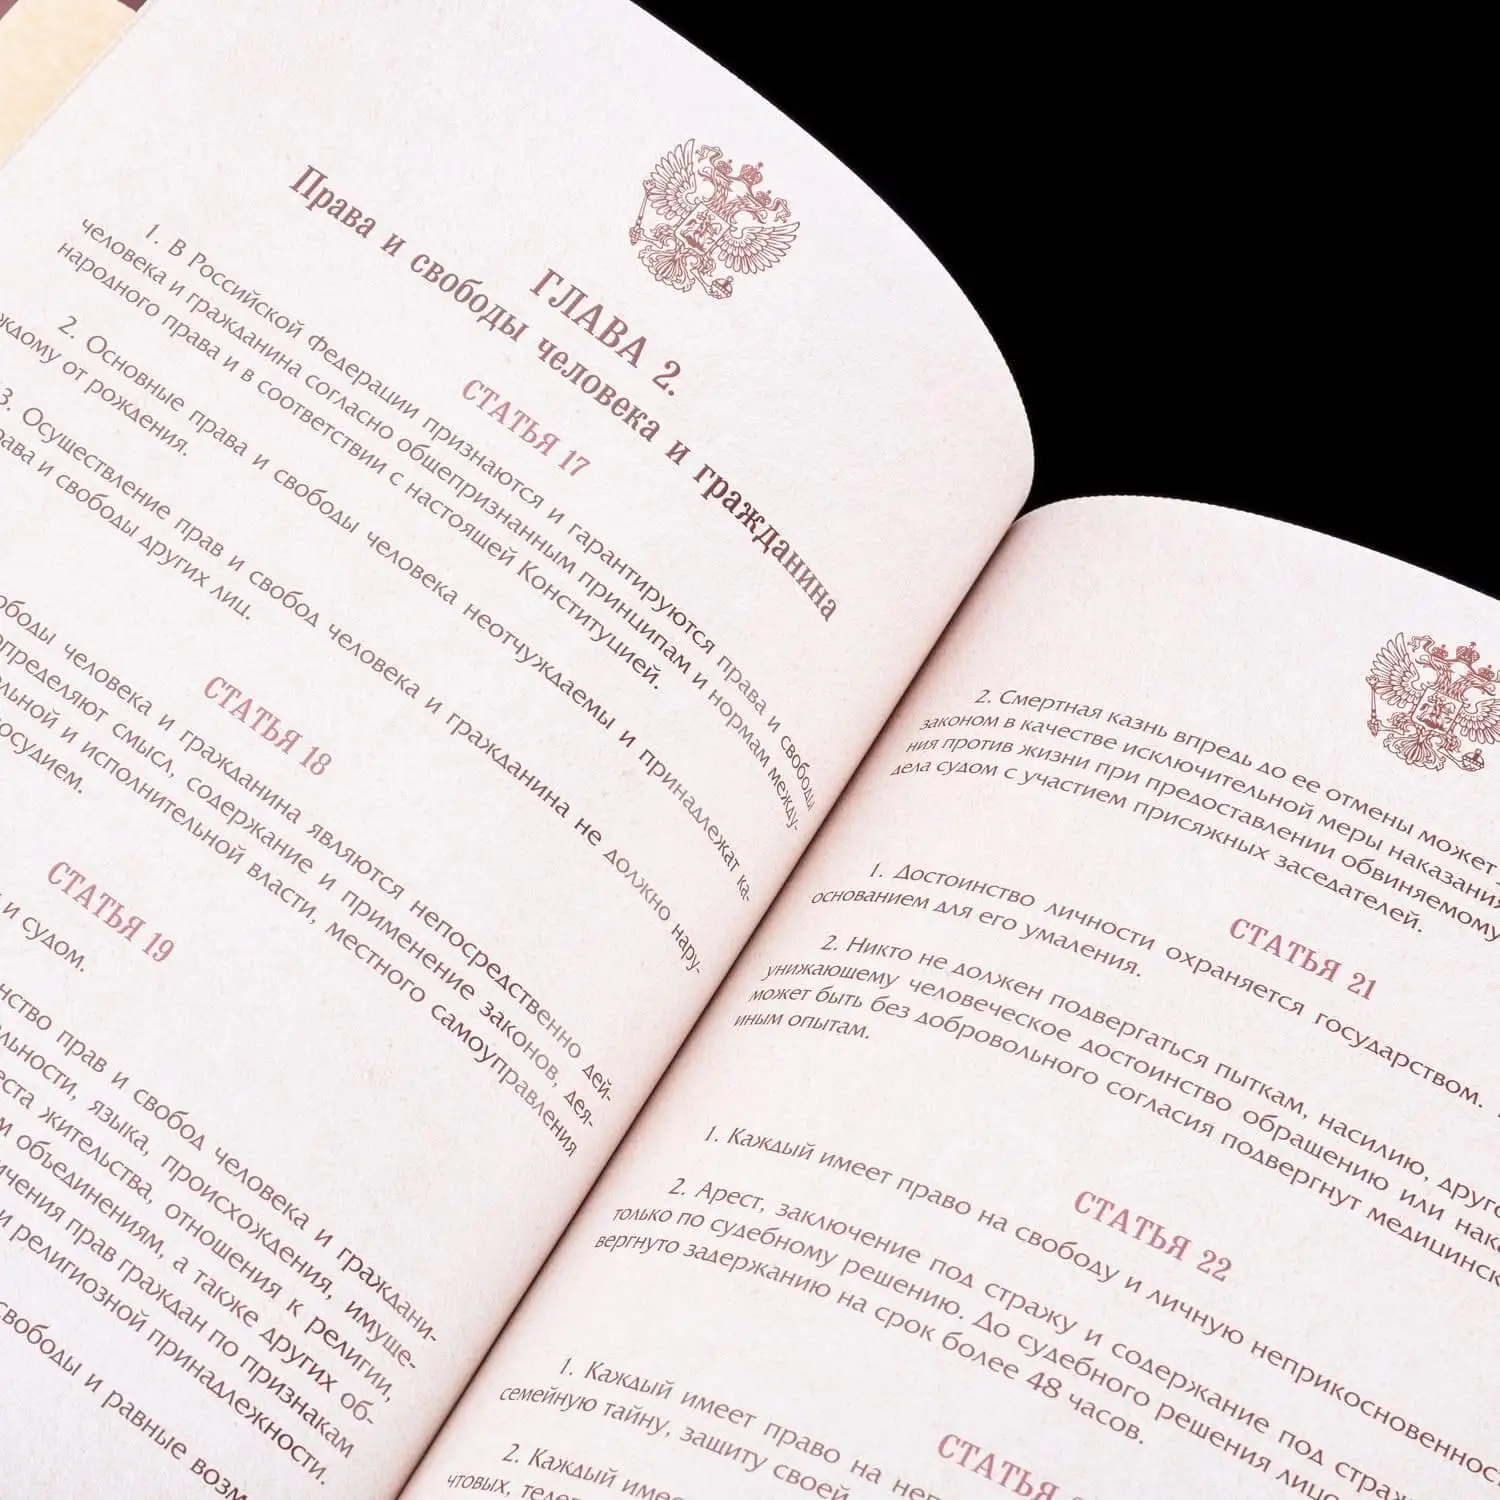 ГЛАВА 2.
Права и свободы человека и гражданина
СТАТЬЯ 17
1. В Российской Федерации признаются и гарантируются права и свободы
человека и гражданина согласно общепризнанным принципам и нормам между-
народного права и в соответствии с настоящей Конституцией.
2. Основные права и свободы человека неотчуждаемы и принадлежат ка-
ждому от рождения.
3. Осуществление прав и свобод человека и гражданина не должно нару-
права и свободы других лиц.
СТАТЬЯ 18
свободы человека и гражданина являются непосредственно дей-
определяют смысл, содержание и применение законов, дея-
и исполнительной власти, местного самоуправления
СТАТЬЯ 19
и судом.
прав и свобод человека и граждани-
языка, происхождения, имуще-
жительства, отношения к религии,
объединениям, а также других об-
прав граждан по признакам
и религиозной принадлежности.
свободы и равные
2. Смертная казнь впредь до ее отмены может
законом в качестве исключительной меры наказания
ния против жизни при предоставлении обвиняемому
дела судом с участием присяжных заседателей.
СТАТЬЯ 21
1. Достоинство личности охраняется государством.
основанием для его умаления.
2. Никто не должен подвергаться пыткам, насилию,
унижающему человеческое достоинство обращению или
может быть без добровольного согласия подвергнут
иным опытам.
СТАТЬЯ 22
1. Каждый имеет право на свободу и личную неприкосновенность
2. Арест, заключение под стражу и содержание под
только по судебному решению. До судебного решения лицо
вергнуто задержанию на срок более 48 часов.
СТАТЬЯ
1. Каждый имеет право на
семейную тайну, защиту своей
2. Каждый имеет
чтовых,